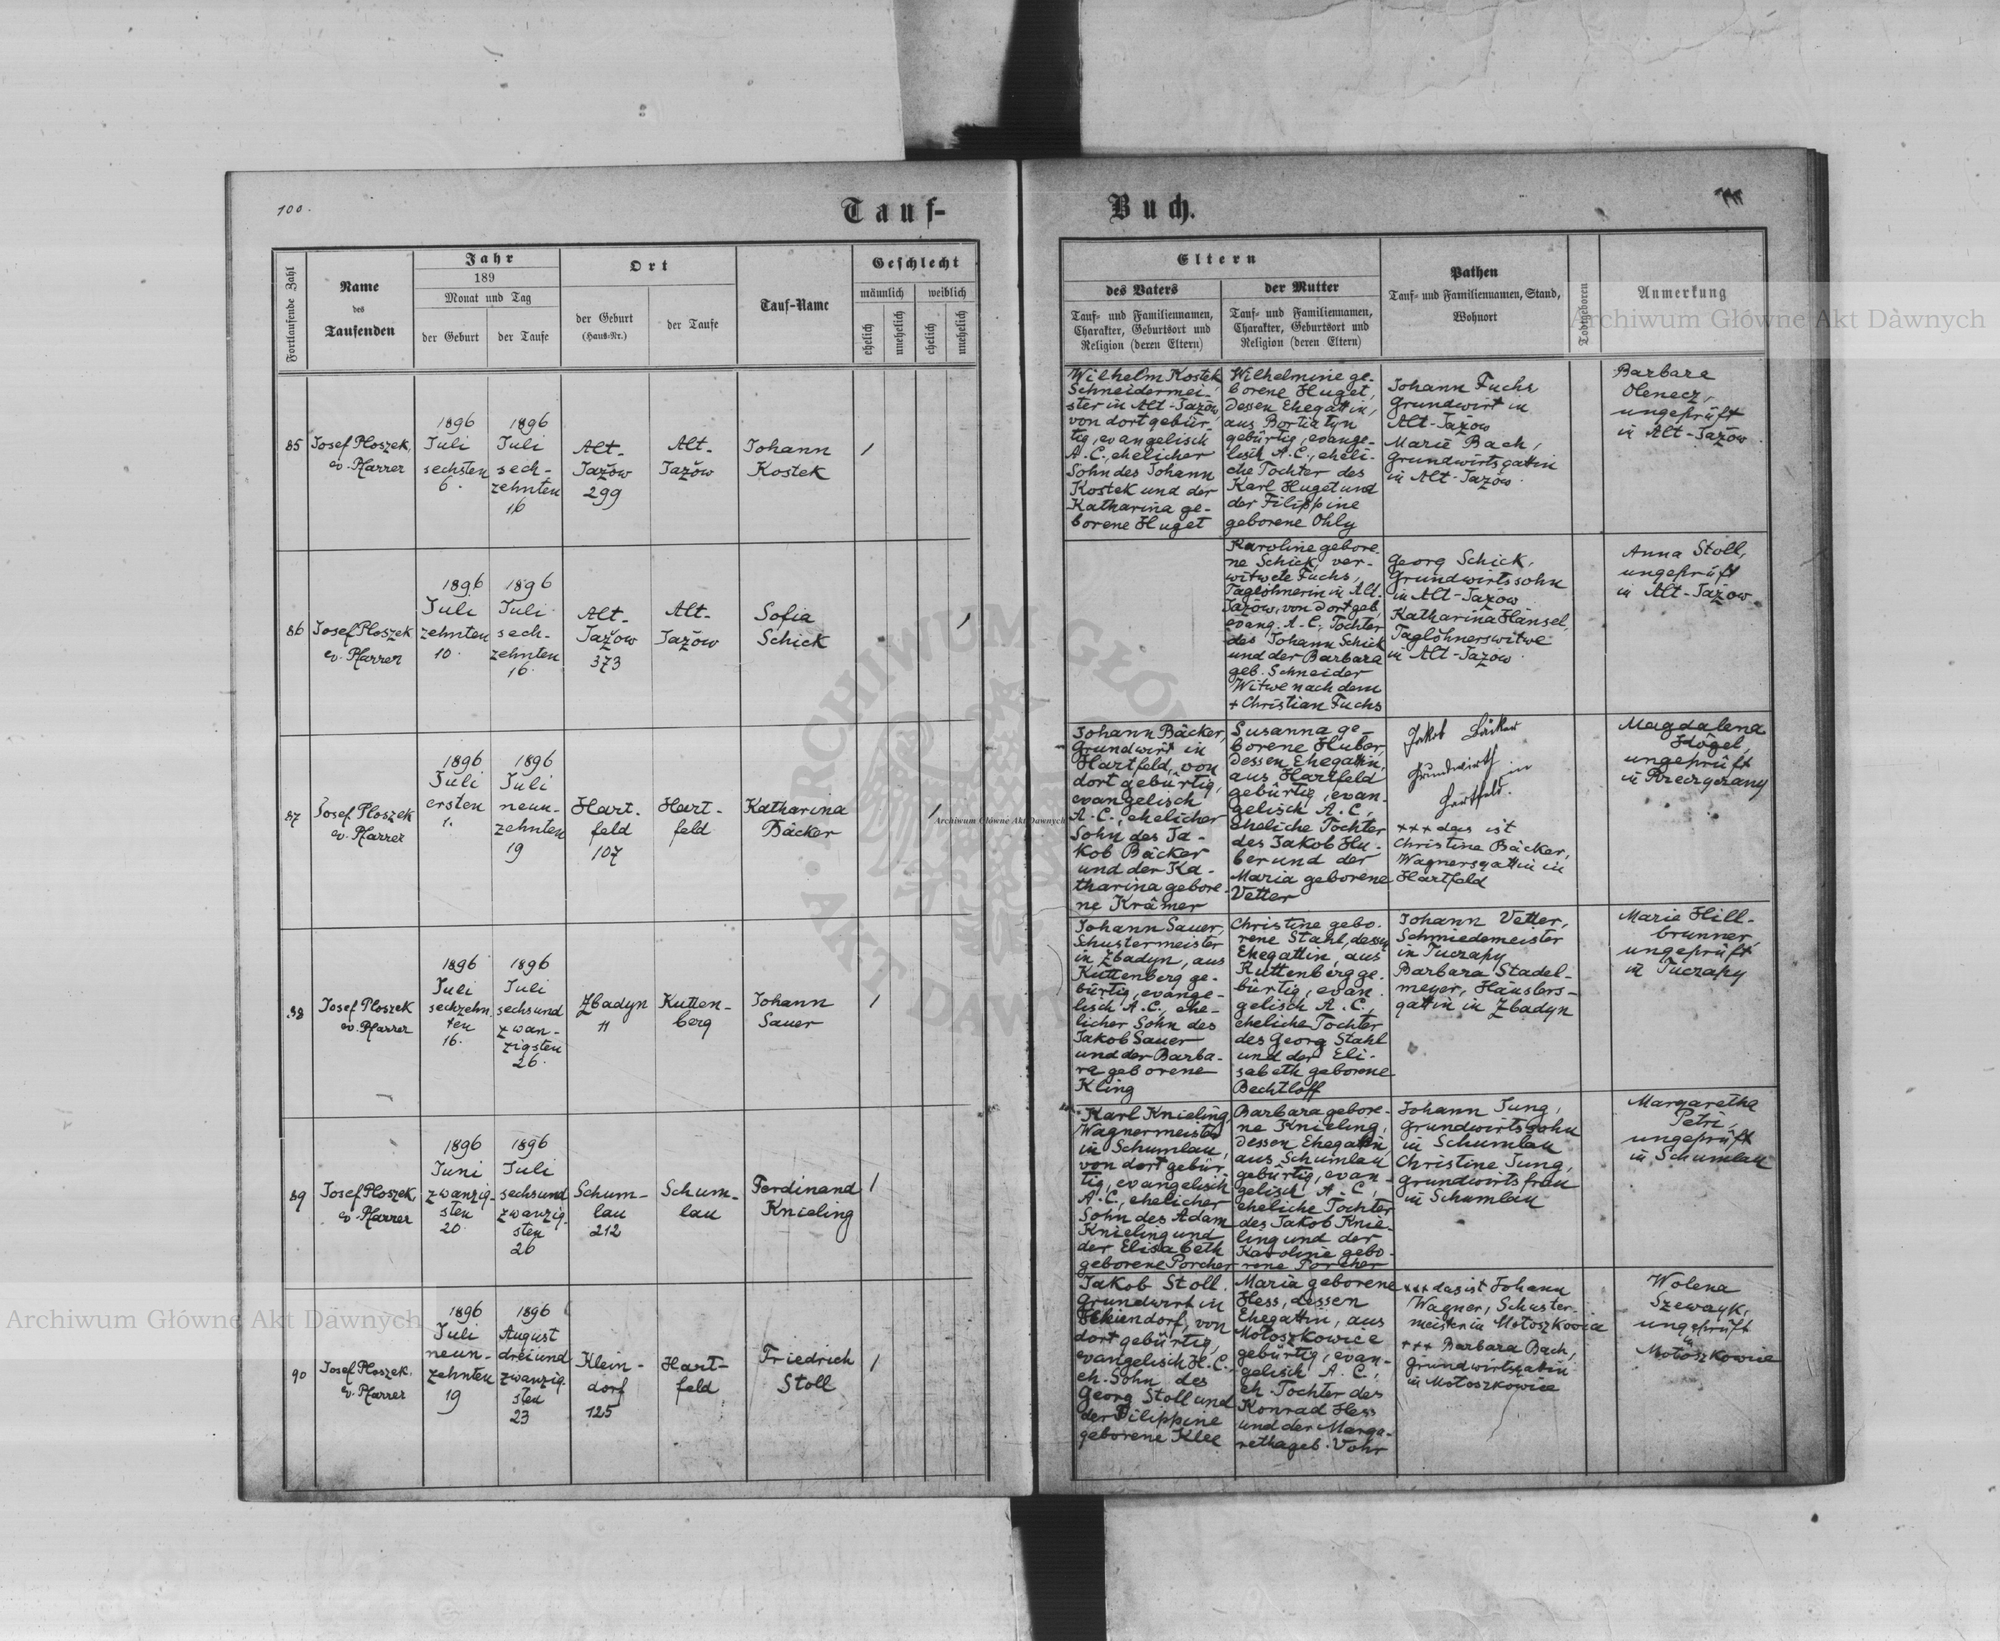 100.
Tauf-
Buch.
Fortlaufende Zahl
Name
des
Taufenden
Jahr
189
Monat und Tag
der Geburt
der Taufe
Ort
der Geburt
(Haus-Nr.)
der Taufe
Tauf-Name
Geschlecht
männlich
weiblich
ehelich
unehelich
ehelich
unehelich
Eltern
des Vaters
Tauf- und Familiennamen,
Charakter, Geburtsort und
Religion (deren Eltern)
der Mutter
Tauf- und Familiennamen,
Charakter, Geburtsort und
Religion (deren Eltern)
Pathen
Tauf- und Familiennamen, Stand,
Wohnort
Todtgeboren
Anmerkung
85
Josef Ploszek,
ev. Pfarrer
1896
Juli
sechsten
6.
1896
Juli
sech-
zehnten
16
Alt-
Jažow
299
Alt-
Jažow
Johann
Kostek
1
Wilhelm Kostek,
Schneidermei-
ster in Alt-Jažow,
von dort gebür-
tig, evangelisch
A.C., ehelicher
Sohn des Johann
Kostek und der
Katharina ge-
borene Huget
Wilhelmine ge-
borene Huget,
dessen Ehegattin,
aus Bortiatyn
gebürtig, evange-
lisch A.C., eheli-
che Tochter des
Karl Huget und
der Filippine
geborene Ohly
Johann Fuchs,
Grundwirt in
Alt-Jažow
Marie Bach,
Grundwirtsgattin
in Alt-Jažow.
Barbara
Olenecz,
ungeprüft
in Alt-Jažow
86
Josef Ploszek
ev. Pfarrer
1896
Juli
zehnten
10.
1896
Juli
sech-
zehnten
16.
Alt-
Jažow
373
Alt-
Jažow
Sofia
Schick
1
Karoline gebore-
ne Schick, ver-
witwete Fuchs,
Taglöhnerin in Alt-
Jažow, von dort geb.
evang. A.C., Tochter
des Johann Schick
und der Barbara
geb. Schneider
Witwe nach dem
+ Christian Fuchs
Georg Schick,
Grundwirtssohn
in Alt-Jažow
Katharina Hänsel,
Taglöhnerswitwe
in Alt-Jažow.
Anna Stoll,
ungeprüft
in Alt-Jažow
87
Josef Ploszek
ev. Pfarrer
1896
Juli
ersten
1.
1896
Juli
neun-
zehnten
19
Hart-
feld
107
Hart-
feld
Katharina
Bäcker
1
Johann Bäcker,
Grundwirt in
Hartfeld, von
dort gebürtig,
evangelisch
A.C., ehelicher
Sohn des Ja-
kob Bäcker
und der Ka-
tharina gebore-
ne Krämer
Susanna ge-
borene Huber,
dessen Ehegattin,
aus Hartfeld
gebürtig, evan-
gelisch A.C,
eheliche Tochter
des Jakob Hu-
ber und der
Maria geborene
Vetter
Jakob Bäcker
Grundwirth
in
Hartfeld.
+++ das ist
Christine Bäcker,
Wagnersgattin in
Hartfeld
Magdalena
Högel,
ungeprüft
in Przezyczany
88
Josef Ploszek
ev. Pfarrer
1896
Juli
sechzehn-
ten
16.
1896
Juli
sechsund
zwan-
zigsten
26.
Zbadyn
11
Kutten-
berg
Johann
Sauer
1
Johann Sauer,
Schustermeister
in Zbadyn, aus
Kuttenberg ge-
bürtig, evange-
lisch A.C., ehe-
licher Sohn des
Jakob Sauer
und der Barba-
ra geborene
Kling
Christine gebo-
rene Stahl, dessen
Ehegattin, aus
Kuttenberg ge-
bürtig, evan-
gelisch A.C.,
eheliche Tochter
des Georg Stahl
und der Eli-
sabeth geborene
Bechtloff
Johann Vetter,
Schmiedemeister
in Tuczapy
Barbara Stadel-
meyer, Häuslers-
gattin in Zbadyn
Marie Hill-
brunner,
ungeprüft
in Tuczapy
89
Josef Ploszek,
ev. Pfarrer
1896
Juni
zwanzig-
sten
20.
1896
Juli
sechsund
zwanzig-
sten
26
Schum-
lau
212
Schum-
lau
Ferdinand
Knieling
1
Karl Knieling,
Wagnermeister
in Schumlau,
von dort gebür-
tig, evangelisch
A.C., ehelicher
Sohn des Adam
Knieling und
der Elisabeth
geborene Porcher
Barbara gebore-
ne Knieling,
dessen Ehegattin,
aus Schumlau
gebürtig, evan-
gelisch A.C.,
eheliche Tochter
des Jakob Knie-
ling und der
Karoline gebo-
rene Porcher
Johann Jung,
Grundwirtssohn
in Schumlau
Christine Jung,
Grundwirtsfrau
in Schumlau
Margaretha
Petri,
ungeprüft
in Schumlau
90
Josef Ploszek,
ev. Pfarrer
1896
Juli
neun-
zehnten
19
1896
August
dreiund
zwanzig
sten
23
Klein-
dorf
125
Hart-
feld
Friedrich
Stoll
1
Jakob Stoll,
Grundwirt in
Kleindorf, von
dort gebürtig,
evangelisch H.C.,
eh. Sohn des
Georg Stoll und
der Filippine
geborene Klee
Maria geborene
Hess, dessen
Ehegattin, aus
Mołoszkowice
gebürtig, evan-
gelisch A.C.,
eh. Tochter des
Konrad Hess
und der Marga-
retha geb. Vohr
+++ das ist Johann
Wagner, Schuster-
meister in Mołoszkowice
+++ Barbara Bach,
Grundwirtsgattin
in Mołoszkowice
Wolena
Szewayk,
ungeprüft
in
Mołoszkowice
Archiwum Główne Akt Dàwnych
Archiwum Główne Akt Dàwnych
Archiwum Główne Akt Dawnych
ARCHIWUM GŁÓWNE AKT DAWNYCH